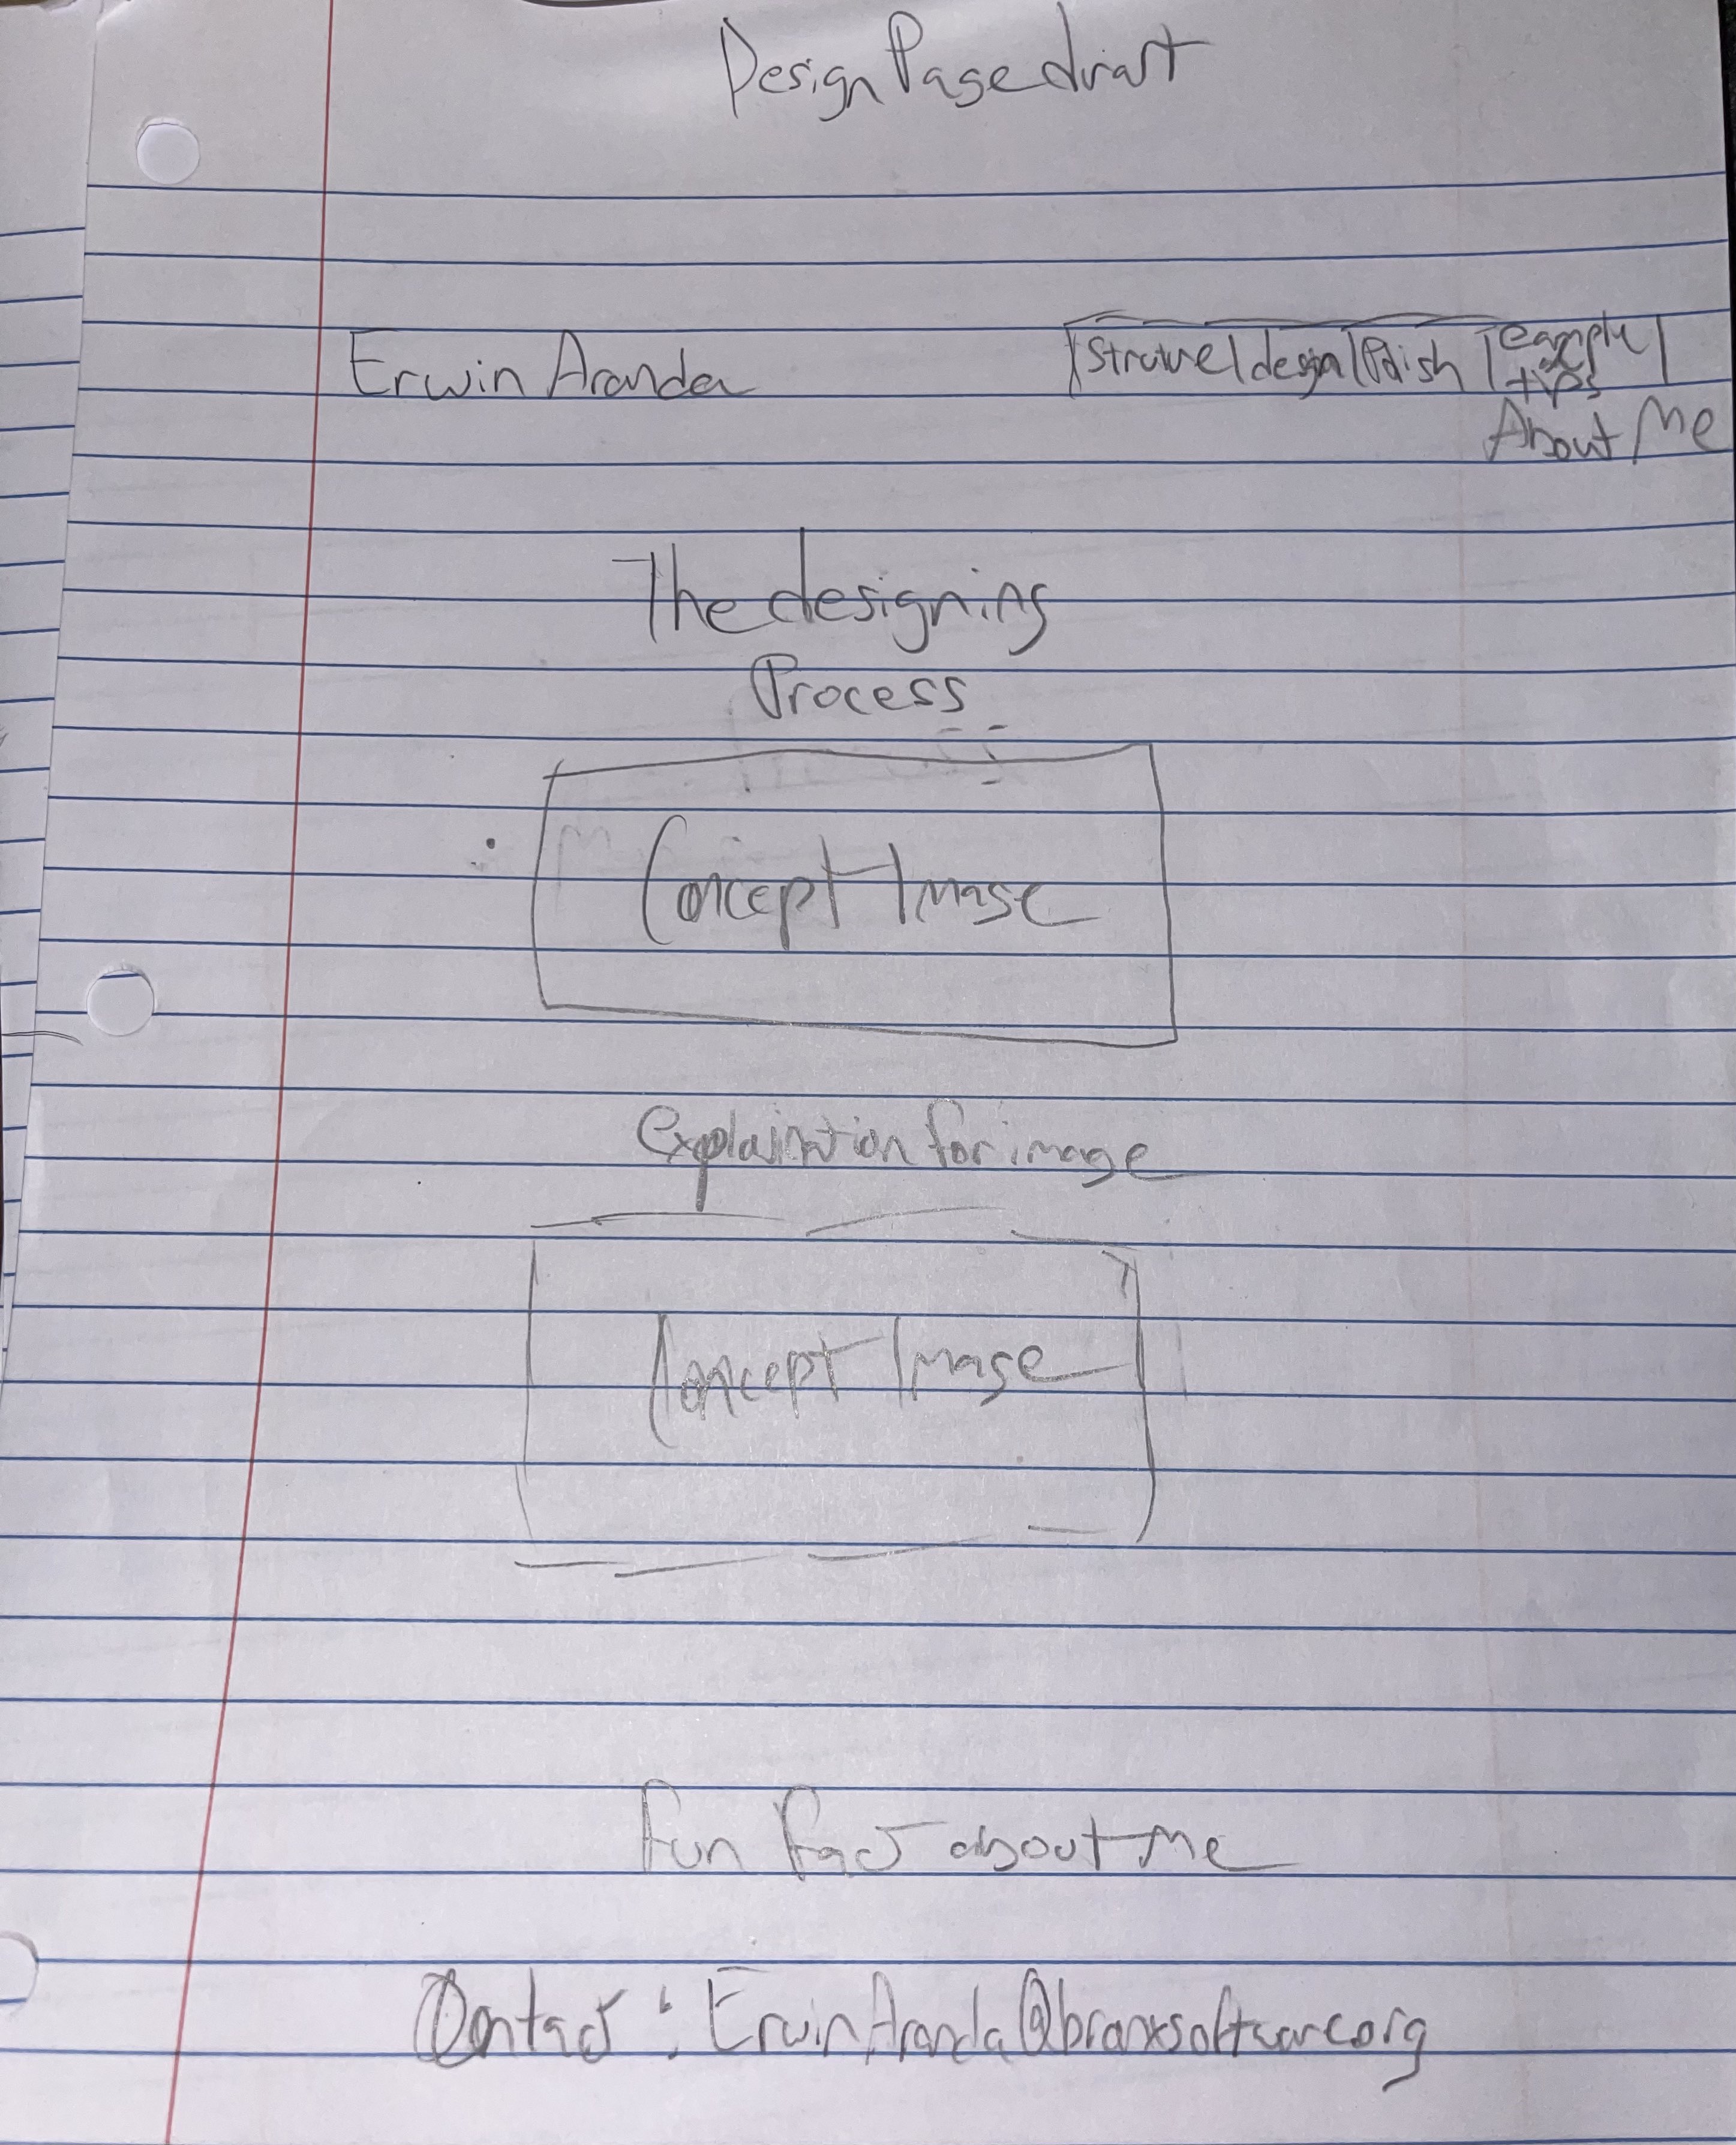 Design Page draft
Erwin Aranda
| Structure | design | Polish | example tips |
About Me
The designing
Process
Concept Image
Explaination for image
Concept Image
Fun fact about me
Contact : ErwinAranda@bronxsoftware.org